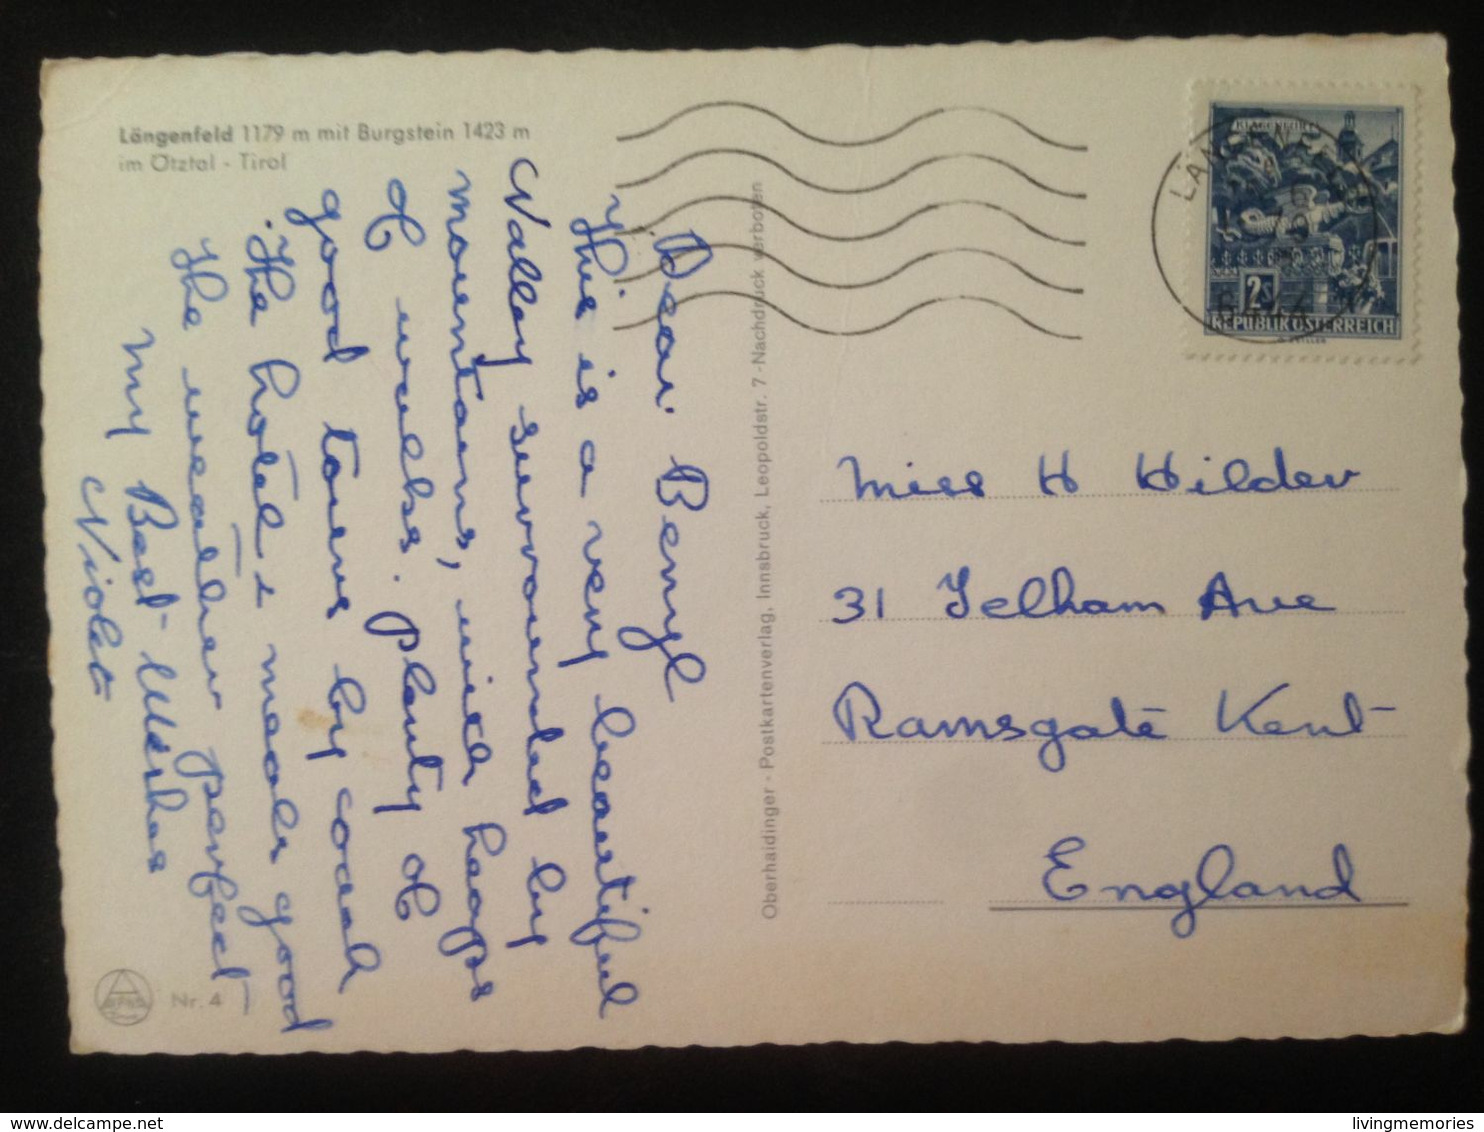 Längenfeld 1179 m mit Burgstein 1423 m
im Ötztal - Tirol
Dear Benyl
This is a very beautiful
Valley surrounded by
mountains, with heaps
of walks. Plenty of
good tours by coach
The hotel & meals good
The weather perfect
My Best Wishes
Violet
Nr. 4
Oberhaidinger - Postkartenverlag, Innsbruck, Leopoldstr. 7 - Nachdruck verboten
KLAGENFURT
2S
REPUBLIK ÖSTERREICH
LÄNGENFELD
6444
Miss H Hilder
31 Telham Ave
Ramsgate Kent
England
delcampe.net
livingmemories